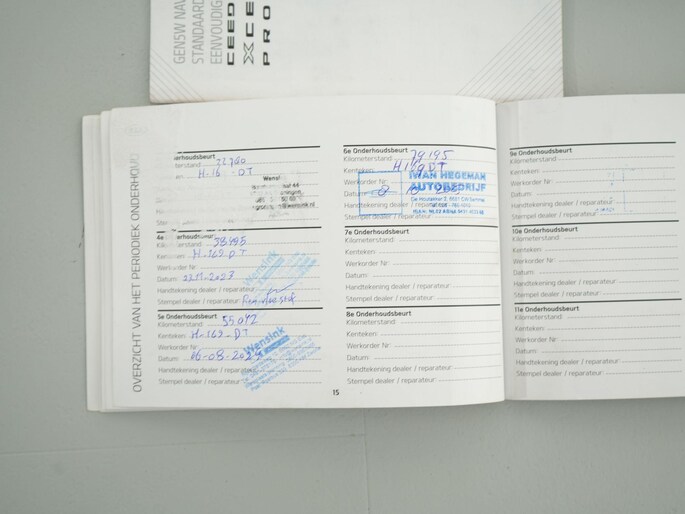 GEN5W NAV
STANDAARD
EENVOUDIG
CEED
XCEE
PRO
OVERZICHT VAN HET PERIODIEK ONDERHOUD
erhoudsbeurt
22700
H-16 -DT
Wensi
4e Onderhoudsbeurt
Kilometerstand: 38995
Kenteken: H-169-DT
Werkorder Nr:
Datum: 2023
Handtekening dealer / reparateur:
Stempel dealer / reparateur:
Wensink
5e Onderhoudsbeurt
Kilometerstand: 55042
Kenteken: H-169-DT
Werkorder Nr:
Datum: 06-08-202
Handtekening dealer / reparateur:
Stempel dealer / reparateur:
Wensink
6e Onderhoudsbeurt
Kilometerstand: 79195
Kenteken: H169DT
Werkorder Nr:
Datum:
Handtekening dealer / reparateur:
Stempel dealer / reparateur:
IWAN HEGEMAN
AUTOBEDRIJF
7e Onderhoudsbeurt
Kilometerstand:
Kenteken:
Werkorder Nr:
Datum:
Handtekening dealer / reparateur:
Stempel dealer / reparateur:
8e Onderhoudsbeurt
Kilometerstand:
Kenteken:
Werkorder Nr:
Datum:
Handtekening dealer / reparateur:
Stempel dealer / reparateur:
15
9e Onderhoudsbeurt
Kilometerstand:
Kenteken:
Werkorder Nr:
Datum:
Handtekening dealer / reparateur:
Stempel dealer / reparateur:
10e Onderhoudsbeurt
Kilometerstand:
Kenteken:
Werkorder Nr:
Datum:
Handtekening dealer / reparateur:
Stempel dealer / reparateur:
11e Onderhoudsbeurt
Kilometerstand:
Kenteken:
Werkorder Nr:
Datum:
Handtekening dealer / reparateur:
Stempel dealer / reparateur: